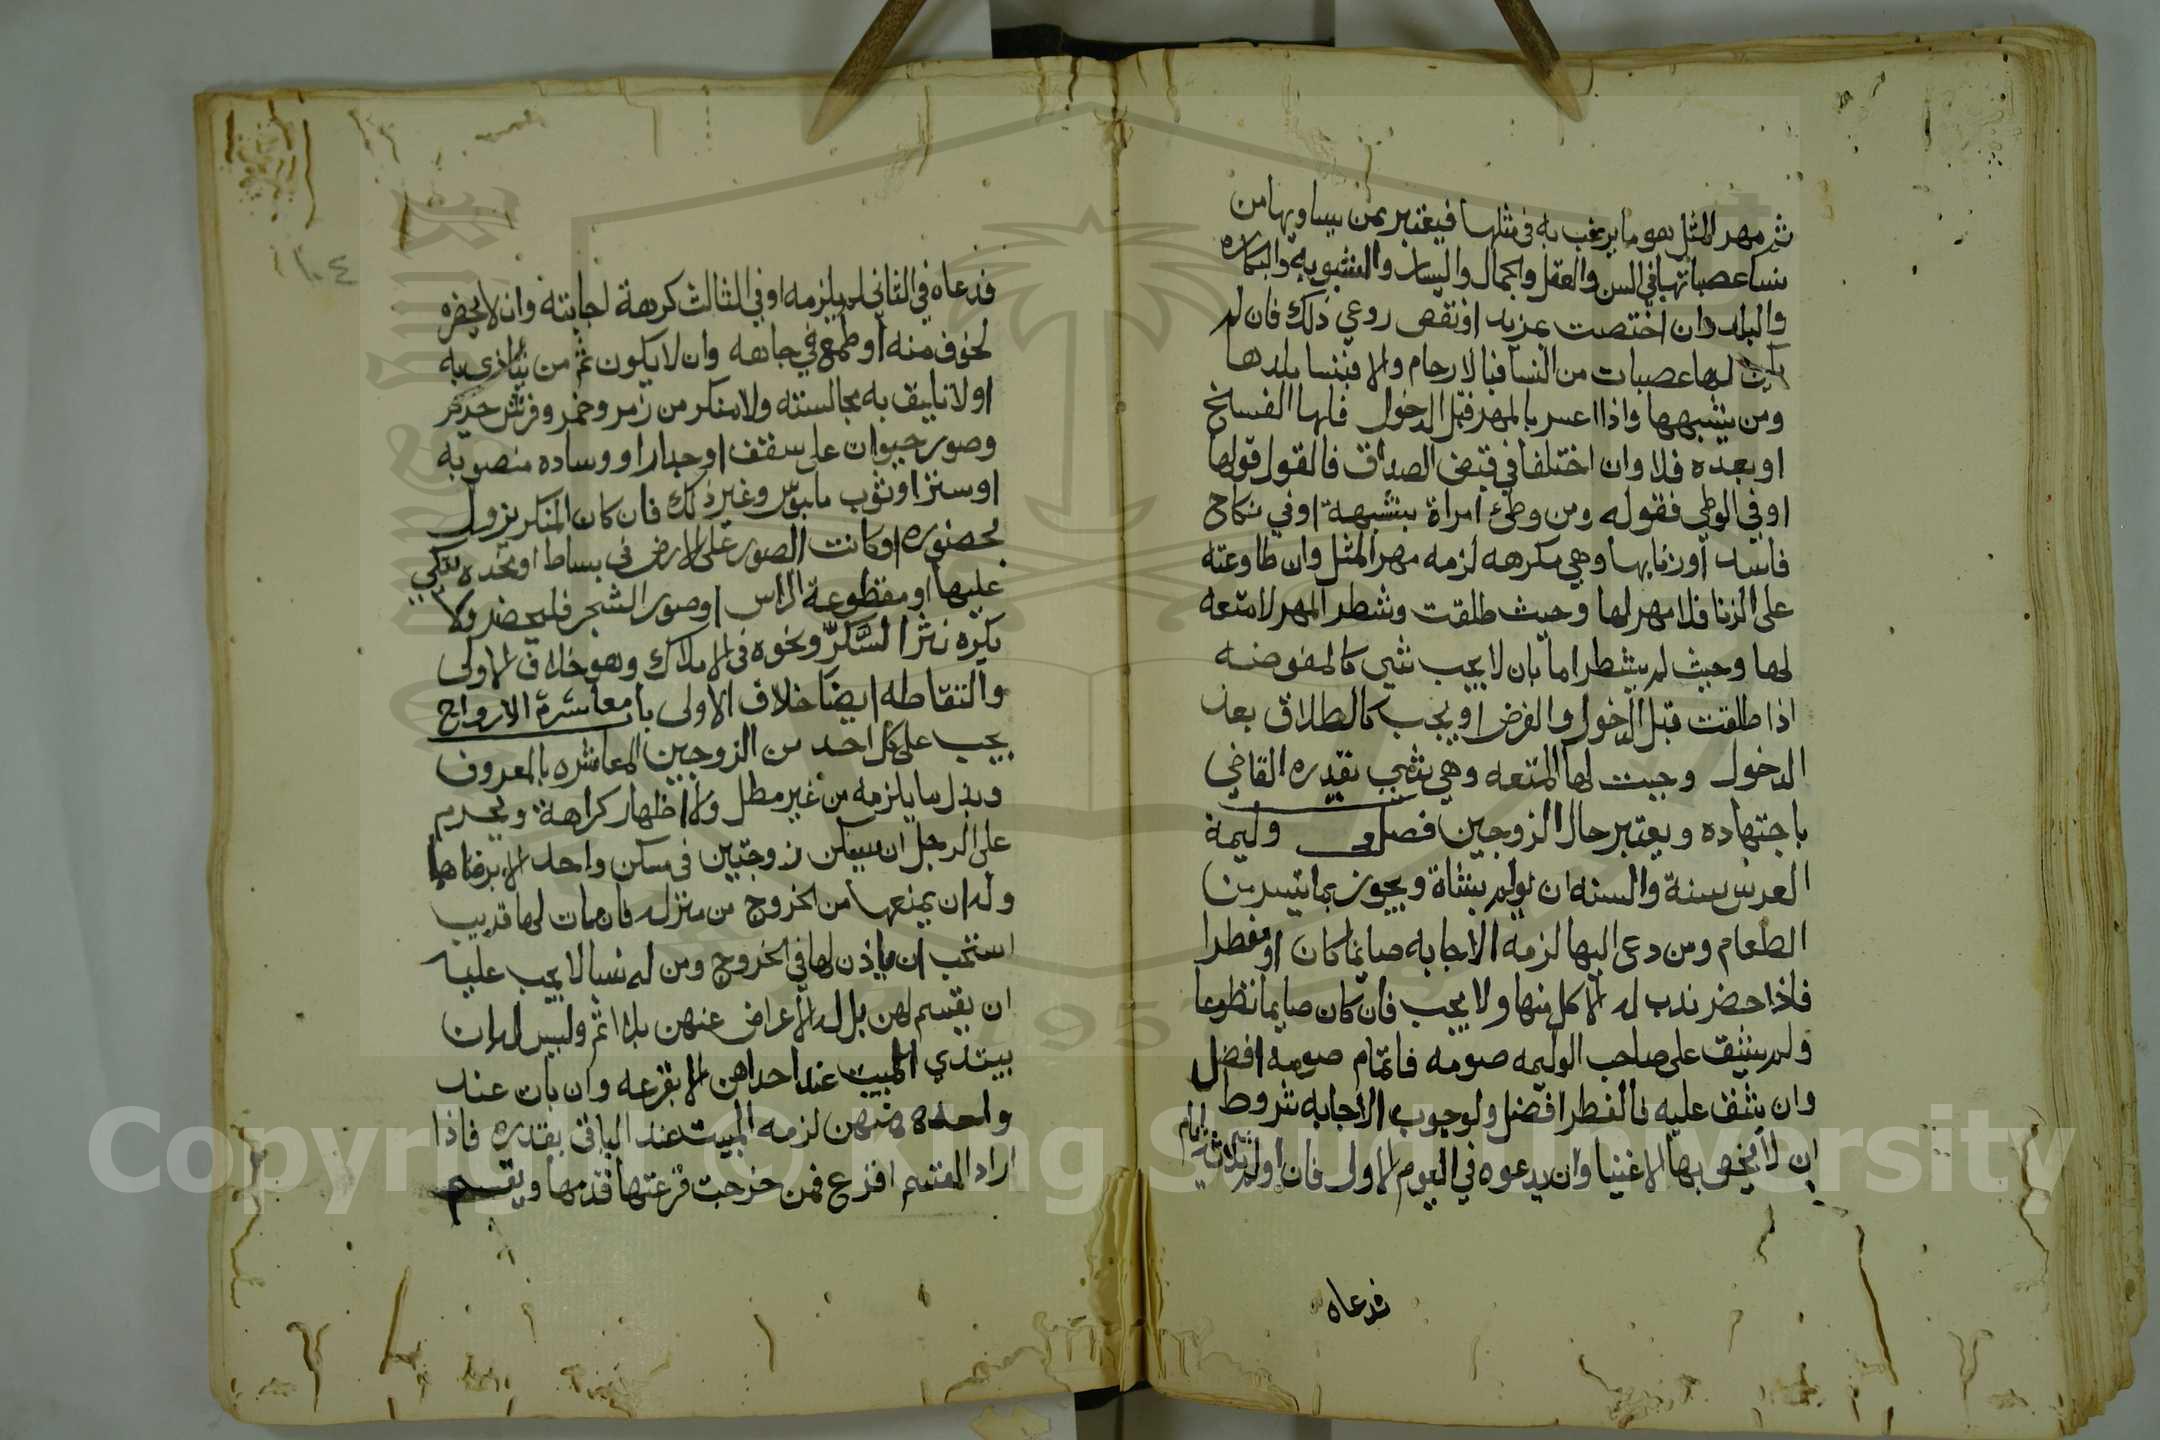 ثم مهر المثل هو ما يرغب به في مثلها فيعتبر بمن يساويها من
نسا عصباتها في السن والعقل والجمال واليسار والثيوبة والبكاره
والبلد وان اختصت بمزيد او نقص روعي ذلك فان لم
يكن لها عصبات من النسا فبالارحام والا فبنسا بلدها
ومن يشبهها واذا اعسر بالمهر قبل الدخول فلها الفسخ
او بعده فلا وان اختلفا في قبض الصداق فالقول قولها
او في الوطي فقوله ومن وطئ امراة بشبهة او في نكاح
فاسد او زنا بها وهي مكرهه لزمه مهر المثل وان طاوعته
على الزنا فلا مهر لها وحيث طلقت وشطر المهر لا متعه
لها وحيث لم يشطر اما بان لا يجب شي كالمفوضه
اذا طلقت قبل الدخول والفرض او يجب كالطلاق بعد
الدخول وجبت لها المتعه وهي شي يقدره القاضي
باجتهاده ويعتبر حال الزوجين فصل وليمة
العرس سنة والسنه ان يولم بشاة ويجوز بما تيسر من
الطعام ومن دعى اليها لزمه الاجابه صايما كان او مفطرا
فاذا حضر ندب له الاكل منها ولا يجب فان كان صايما تطوعا
ولم يشق على صاحب الوليمه صومه فاتمام صومه افضل
وان شق عليه فالفطر افضل ولوجوب الاجابه شروط
ان لا يخص بها الاغنيا وان يدعوه في اليوم الاول فان اولم ثلاثة ايام
فدعاه
١٠٤
فدعاه في الثاني لم يلزمه او في الثالث كرهة اجابته وان لا يحضره
لخوف منه او طمع في جاهه وان لا يكون ثم من يتاذى به
او لا تليق به مجالسته ولا منكر من زمر وخمر وفرش حرير
وصور حيوان على سقف او جدار او وساده منصوبه
او ستر او ثوب ملبوس وغير ذلك فان كان المنكر يزول
بحضوره او كانت الصور على الارض في بساط او مخده يتكي
عليها او مقطوعة الراس او صور الشجر فليحضر ولا
يكره نثر السكر ونحوه في الاملاك وهو خلاف الاولى
والتقاطه ايضا خلاف الاولى باب معاشرة الازواج
يجب على كل احد من الزوجين المعاشره بالمعروف
وبذل ما يلزمه من غير مطل ولا اظهار كراهة ويحرم
على الرجل ان يسكن زوجتين في مسكن واحد الا برضاها
وله ان يمنعها من الخروج من منزله فان مات لها قريب
استحب ان ياذن لها في الخروج ومن له نسا لا يجب عليه
ان يقسم لهن بل له الاعراض عنهن بلا اثم وليس له ان
يبتدي المبيت عند احداهن الا بقرعه وان بات عند
واحده منهن لزمه المبيت عند الباقي بقدره فاذا
اراد القسم اقرع فمن خرجت قرعتها قدمها ويقسم
Copyright © King Saud University
1957